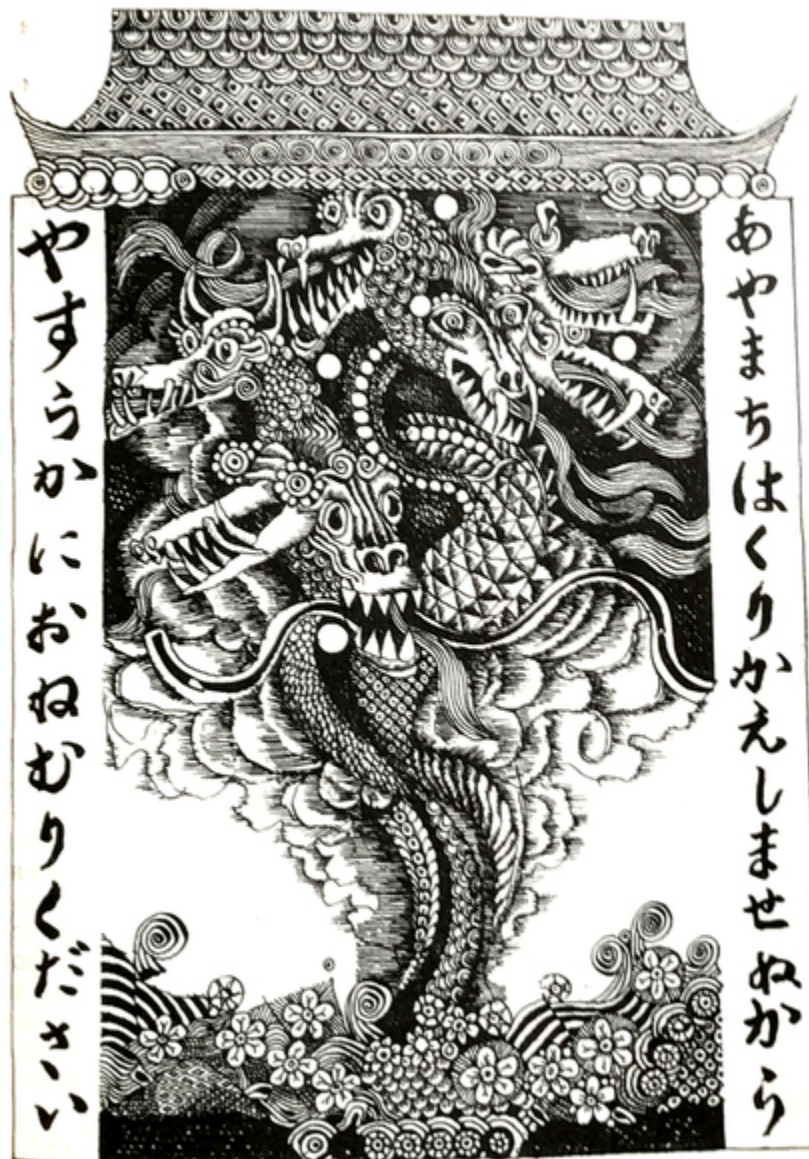 あやまちはくりかえしませぬから
やすらかにおねむりください